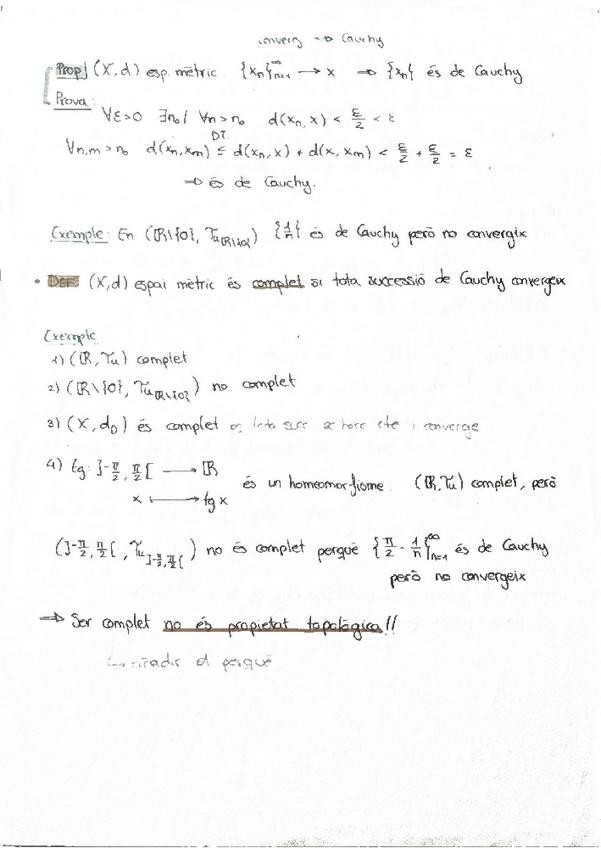 converg ⇒ Cauchy
Prop| (X,d) esp. mètric. {xₙ}ₙ₌₁^∞ → x ⇒ {xₙ} és de Cauchy
Prova:
∀ε>0 ∃n₀ / ∀n>n₀ d(xₙ,x) < ε/2 < ε
DT
∀n,m>n₀ d(xₙ,xₘ) ≤ d(xₙ,x) + d(x,xₘ) < ε/2 + ε/2 = ε
⇒ és de Cauchy.
Exemple: En (ℝ\{0}, τᵤ ℝ\{0}) {1/n} és de Cauchy però no convergix
• Def: (X,d) espai mètric és complet si tota successió de Cauchy convergeix
Exemple
1) (ℝ, τᵤ) complet
2) (ℝ\{0}, τᵤ ℝ\{0}) no complet
3) (X, d_D) és complet tota succ cte i converge
4) tg: ]-π/2, π/2[ → ℝ
x ↦ tg x
és un homeomorfisme. (ℝ, τᵤ) complet, però
(]-π/2, π/2[, τᵤ ]-π/2, π/2[) no és complet perquè {π/2 - 1/n}ₙ₌₁^∞ és de Cauchy
però no convergeix
⇒ Ser complet no és propietat topològica!!
el perquè